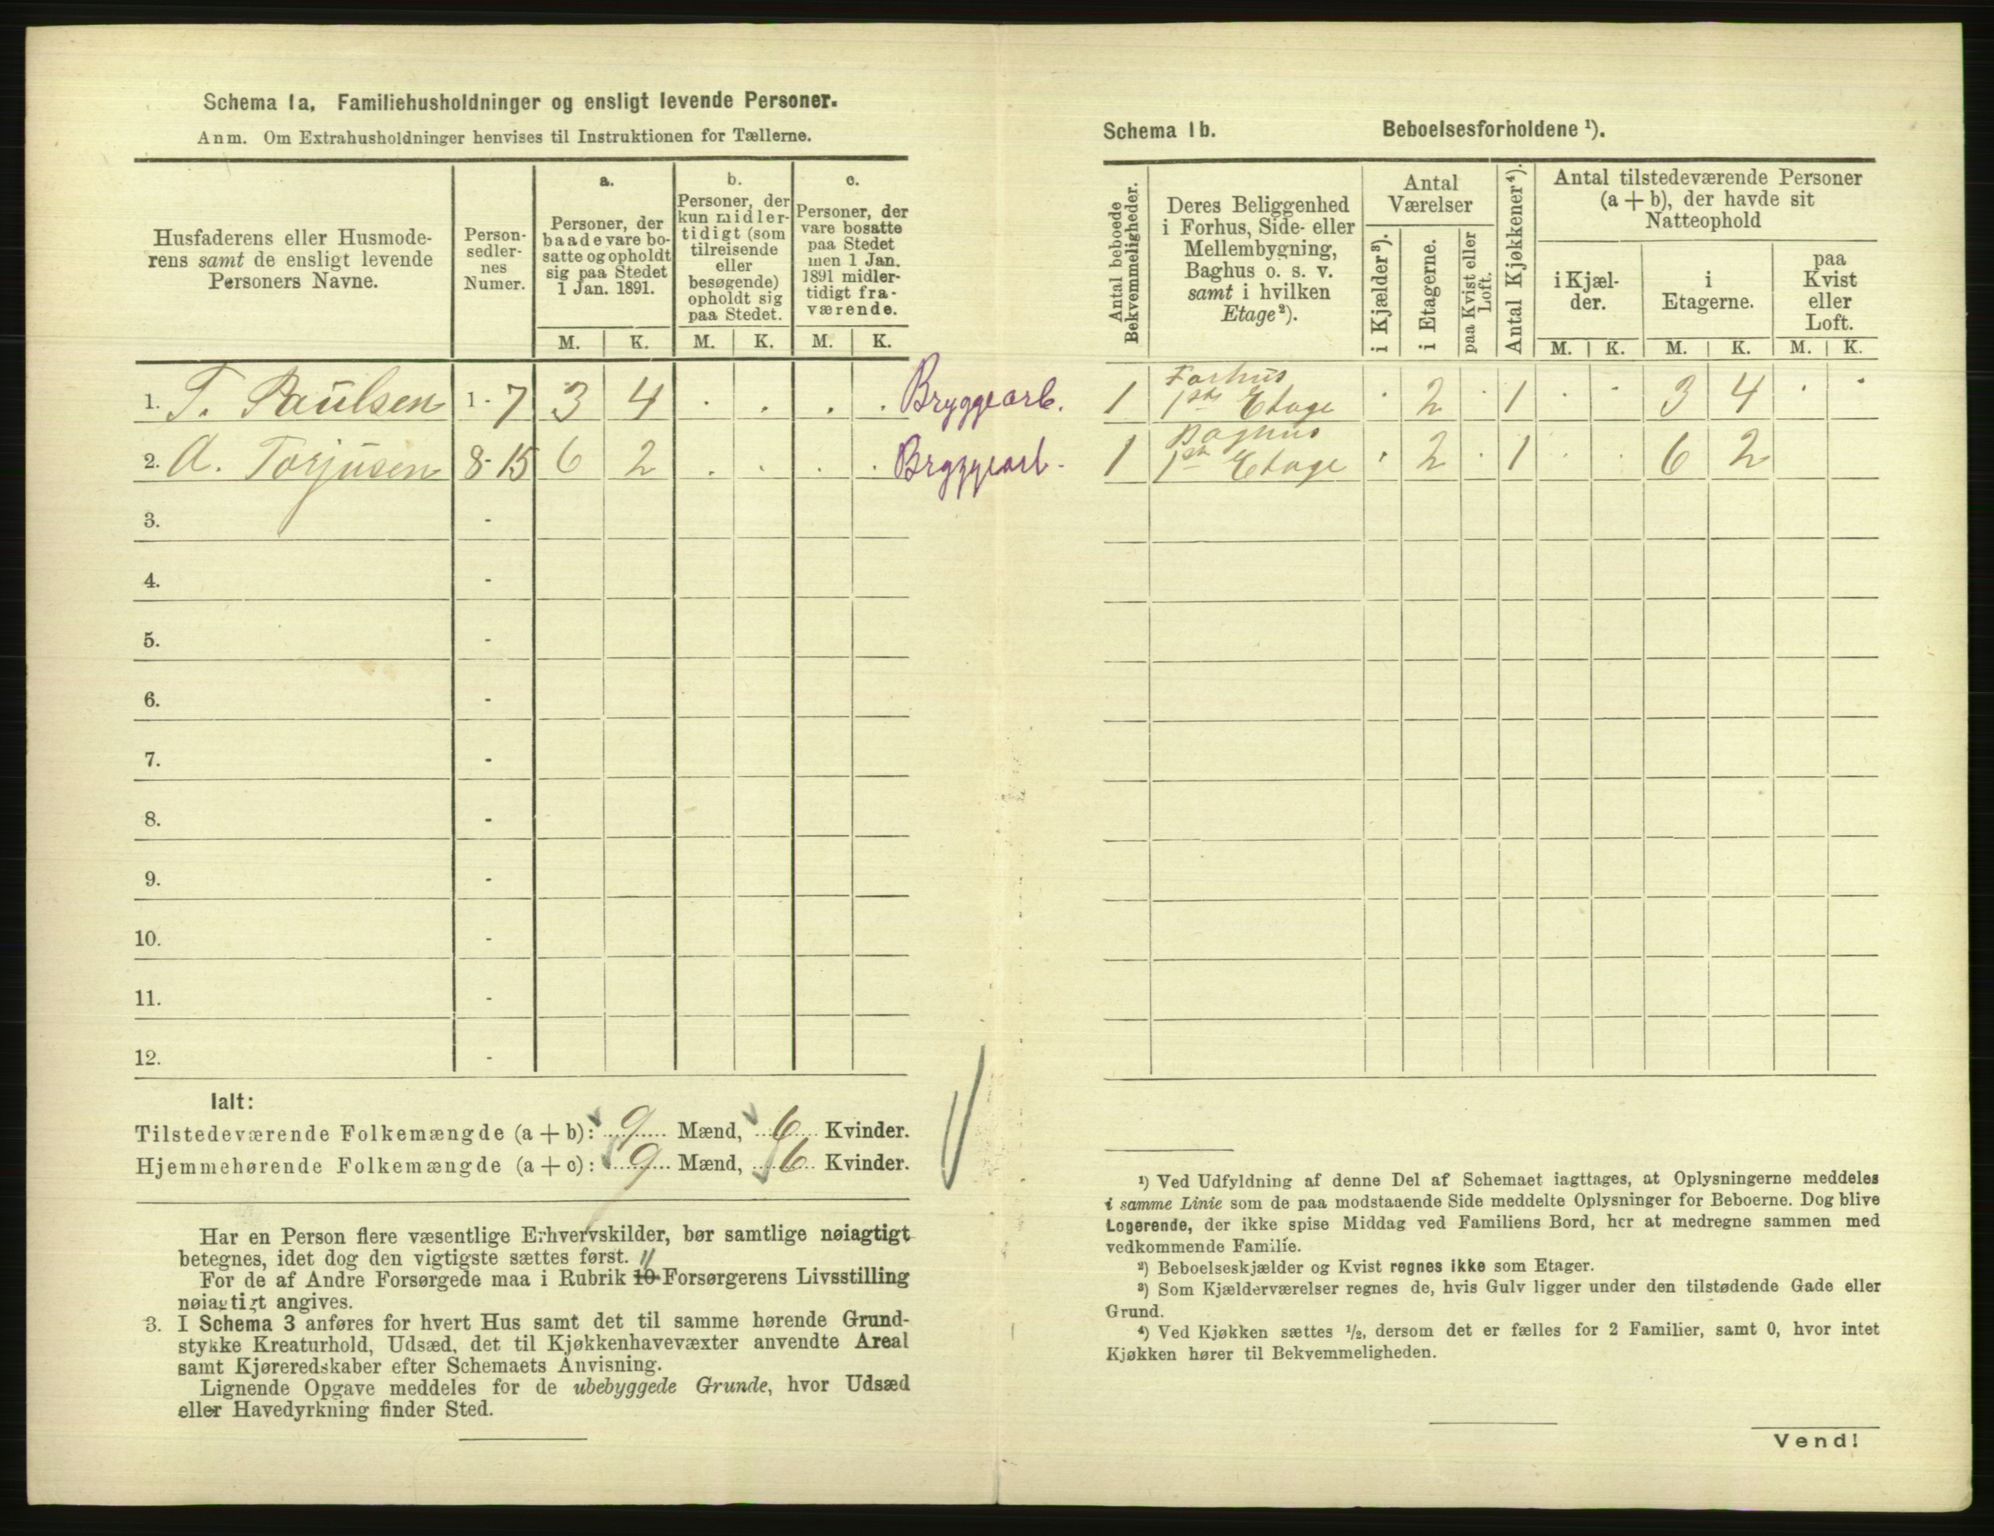 Schema 1a. Familiehusholdninger og ensligt levende Personer.
Anm. Om Extrahusholdninger henvises til Instruktionen for Tællerne.
Husfaderens eller Husmode-
rens samt de ensligt levende
Personers Navne.
Person-
sedler-
nes
Numer.
a.
Personer, der
baade vare bo-
satte og opholdt
sig paa Stedet
1 Jan. 1891.
b.
Personer, der
kun midler-
tidigt (som
tilreisende
eller
besøgende)
opholdt sig
paa Stedet.
c.
Personer, der
vare bosatte
paa Stedet
men 1 Jan.
1891 midler-
tidigt fra-
værende.
M. K. M. K. M. K.
1. T. Paulsen 1 - 7 3 4 . . . . Bryggearb.
2. A. Torjusen 8 - 15 6 2 . . . . Bryggearb.
3. -
4. -
5. -
6. -
7. -
8. -
9. -
10. -
11. -
12. -
Ialt:
Tilstedeværende Folkemængde (a + b): 9 Mænd, 6 Kvinder.
Hjemmehørende Folkemængde (a + c): 9 Mænd, 6 Kvinder.
Har en Person flere væsentlige Erhvervskilder, bør samtlige nøiagtigt
betegnes, idet dog den vigtigste sættes først.
For de af Andre Forsørgede maa i Rubrik 10 11 Forsørgerens Livsstilling
nøiagtigt angives.
3. I Schema 3 anføres for hvert Hus samt det til samme hørende Grund-
stykke Kreaturhold, Udsæd, det til Kjøkkenhavevæxter anvendte Areal
samt Kjøreredskaber efter Schemaets Anvisning.
Lignende Opgave meddeles for de ubebyggede Grunde, hvor Udsæd
eller Havedyrkning finder Sted.
Schema 1b. Beboelsesforholdene ¹).
Antal beboede
Bekvemmeligheder.
Deres Beliggenhed
i Forhus, Side- eller
Mellembygning,
Baghus o. s. v.
samt i hvilken
Etage²).
Antal
Værelser
i Kjælder³).
i Etagerne.
paa Kvist eller
Loft.
Antal Kjøkkener⁴).
Antal tilstedeværende Personer
(a + b), der havde sit
Natteophold
i Kjæl-
der.
i
Etagerne.
paa
Kvist
eller
Loft.
M. K. M. K. M. K.
1 Forhus
1ste Etage . 2 . 1 . . 3 4 . .
1 Baghus
1ste Etage . 2 . 1 . . 6 2
¹) Ved Udfyldning af denne Del af Schemaet iagttages, at Oplysningerne meddeles
i samme Linie som de paa modstaaende Side meddelte Oplysninger for Beboerne. Dog blive
Logerende, der ikke spise Middag ved Familiens Bord, her at medregne sammen med
vedkommende Familie.
²) Beboelseskjælder og Kvist regnes ikke som Etager.
³) Som Kjælderværelser regnes de, hvis Gulv ligger under den tilstødende Gade eller
Grund.
⁴) Ved Kjøkken sættes ½, dersom det er fælles for 2 Familier, samt 0, hvor intet
Kjøkken hører til Bekvemmeligheden.
Vend!